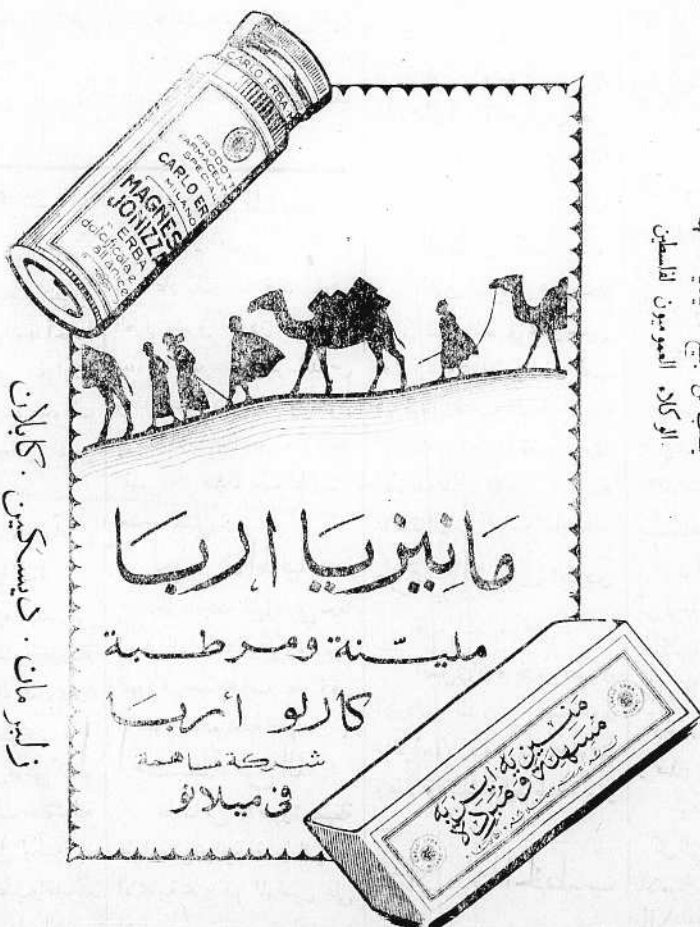 CARLO ERBA
PRODOTTI
FARMACEUTICI
SPECIALI
CARLO ERBA
MILANO
MAGNES
JONIZZA
ERBA
all'anice
مانيزيا اربا
مليّنة ومرطبة
كارلو أربا
شركة مساهمة
فى ميلانو
الوكلاء العموميون لفلسطين
زلبرمان . ديسكين . كابلان